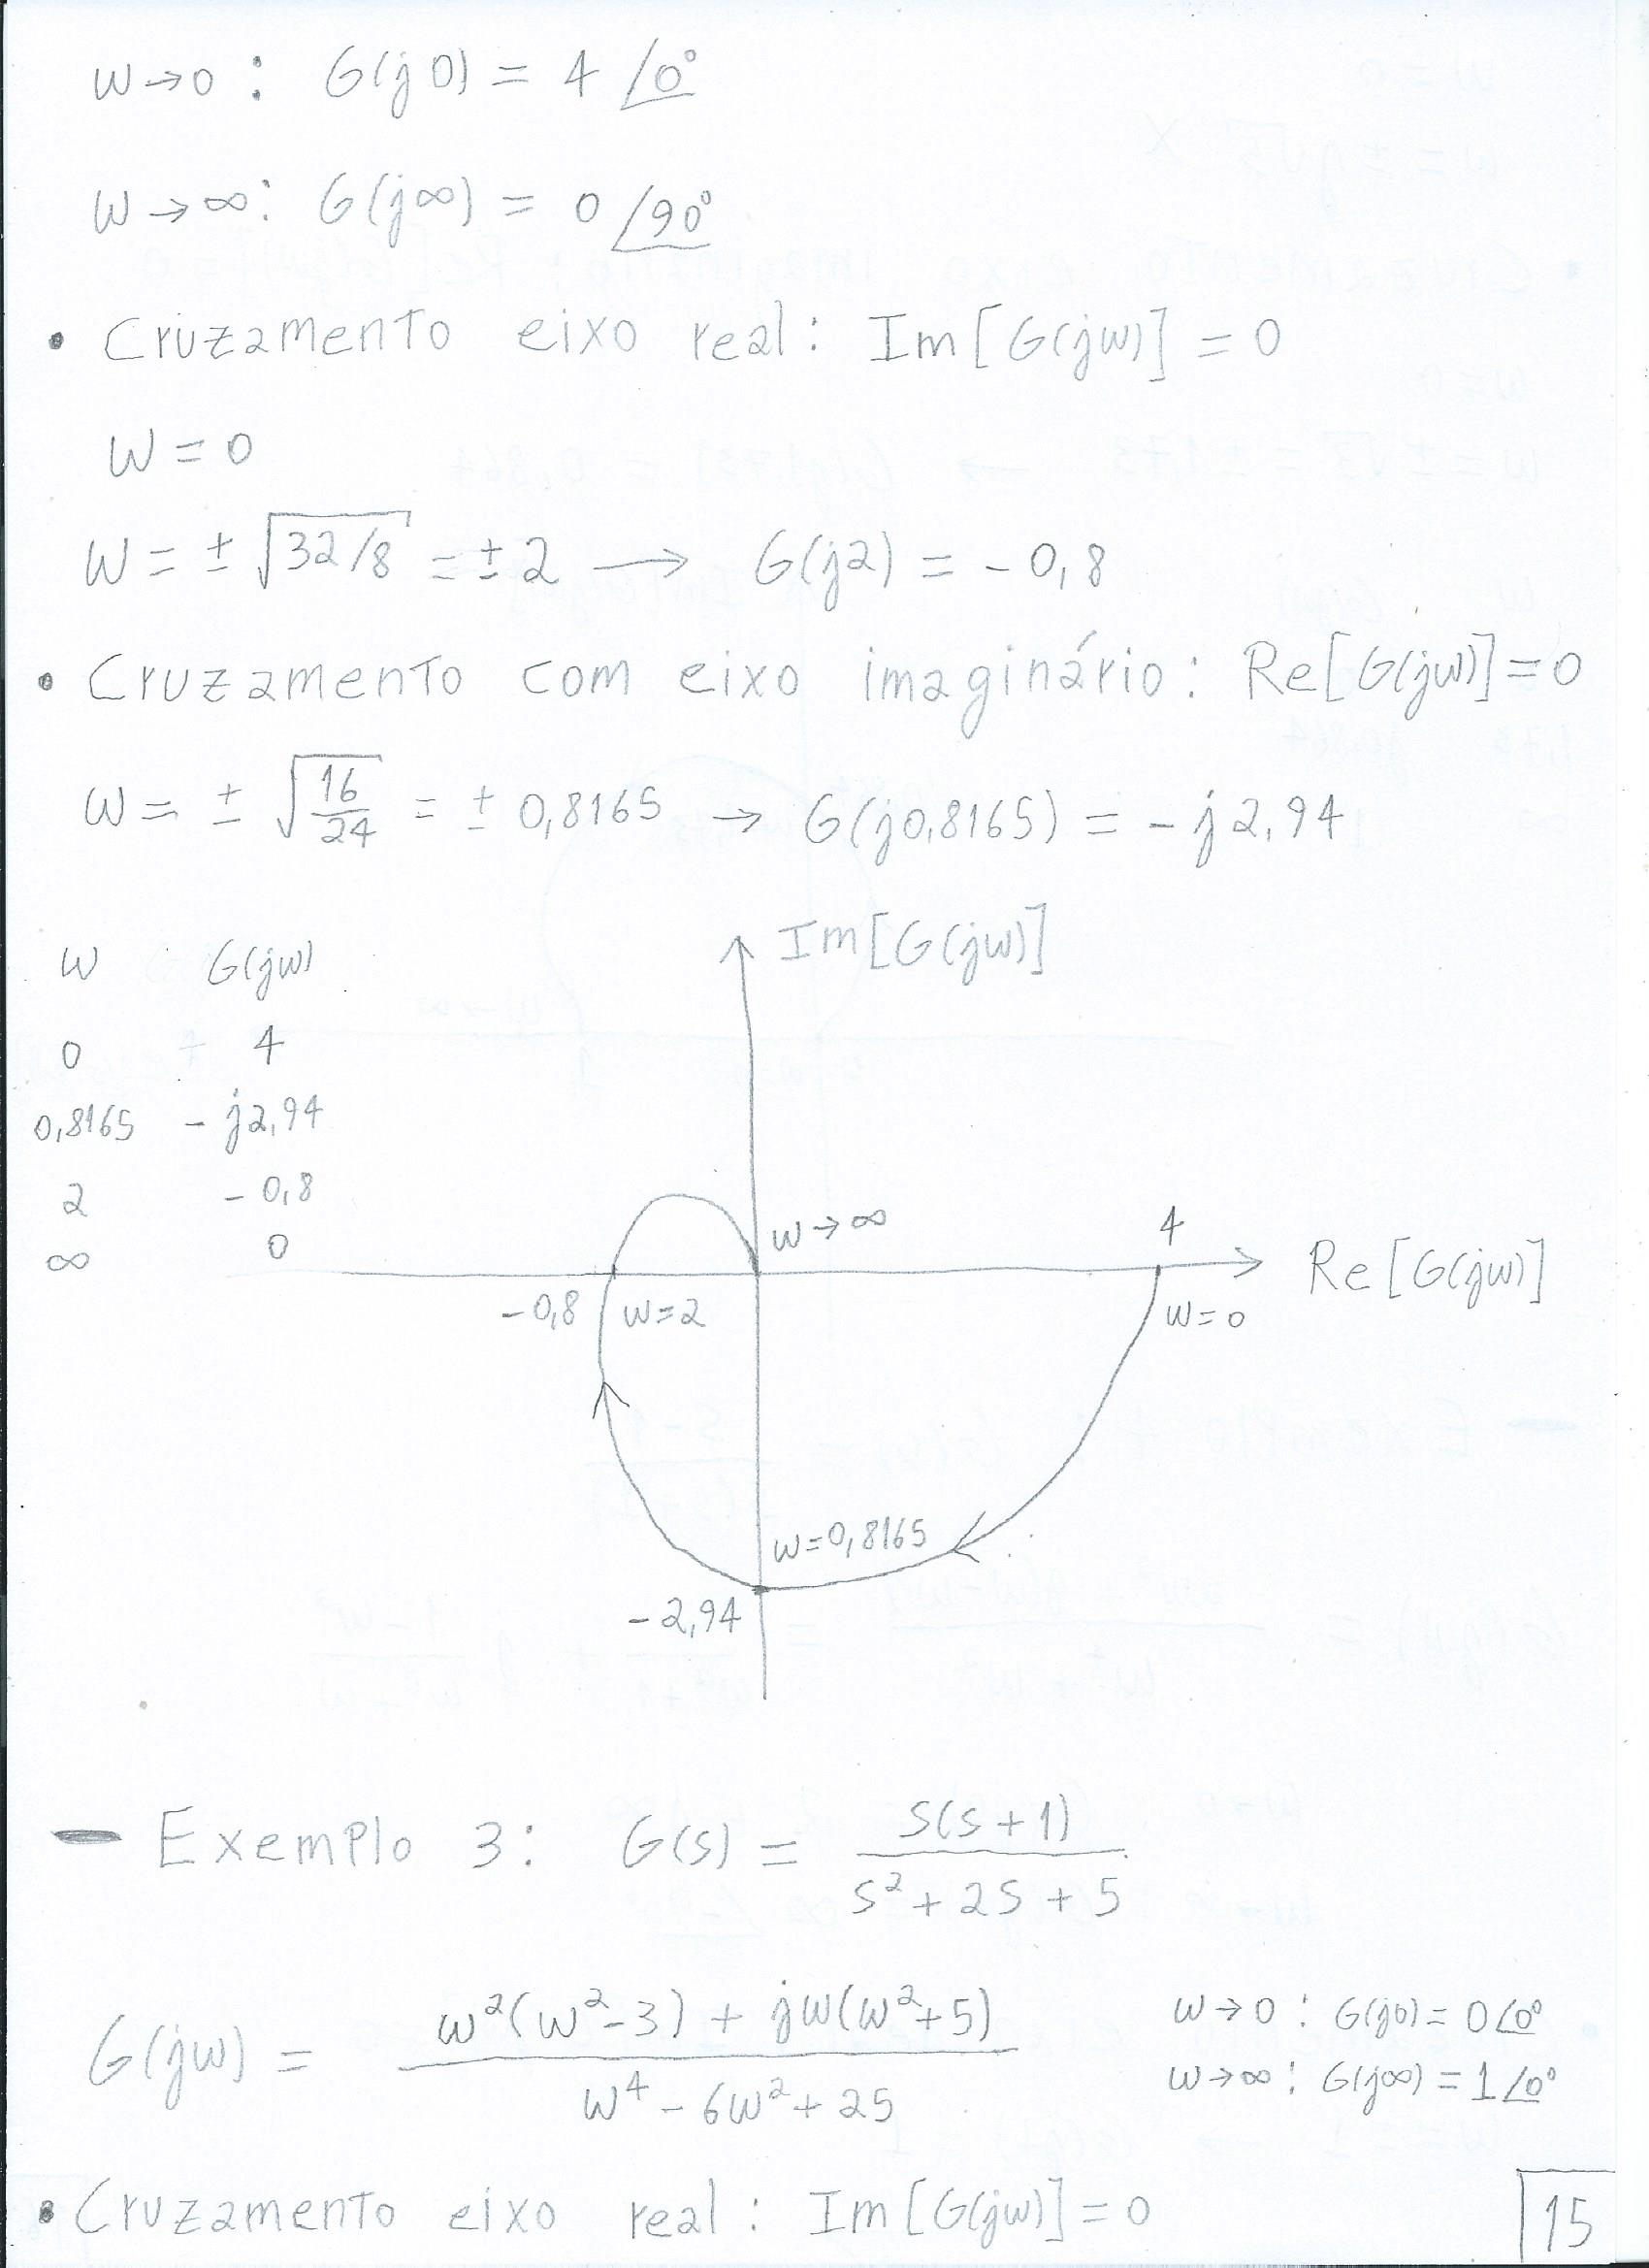 W→0 : G(j0) = 4 ∠0°
W→∞ : G(j∞) = 0 ∠90°
• Cruzamento eixo real : Im[G(jw)] = 0
W = 0
W = ± √32/8 = ± 2 → G(j2) = -0,8
• Cruzamento com eixo imaginário : Re[G(jw)] = 0
W = ± √(16/24) = ± 0,8165 → G(j0,8165) = -j2,94
Im[G(jw)]
W G(jw)
0 4
0,8165 -j2,94
2 -0,8
∞ 0
W→∞
4
Re[G(jw)]
-0,8
W=2
W=0
W=0,8165
-2,94
— Exemplo 3 : G(s) = s(s+1) / (s²+2s+5)
G(jw) = (w²(w²-3) + jw(w²+5)) / (w⁴-6w²+25)
W→0 : G(j0) = 0∠0°
W→∞ : G(j∞) = 1∠0°
• Cruzamento eixo real : Im[G(jw)] = 0
15